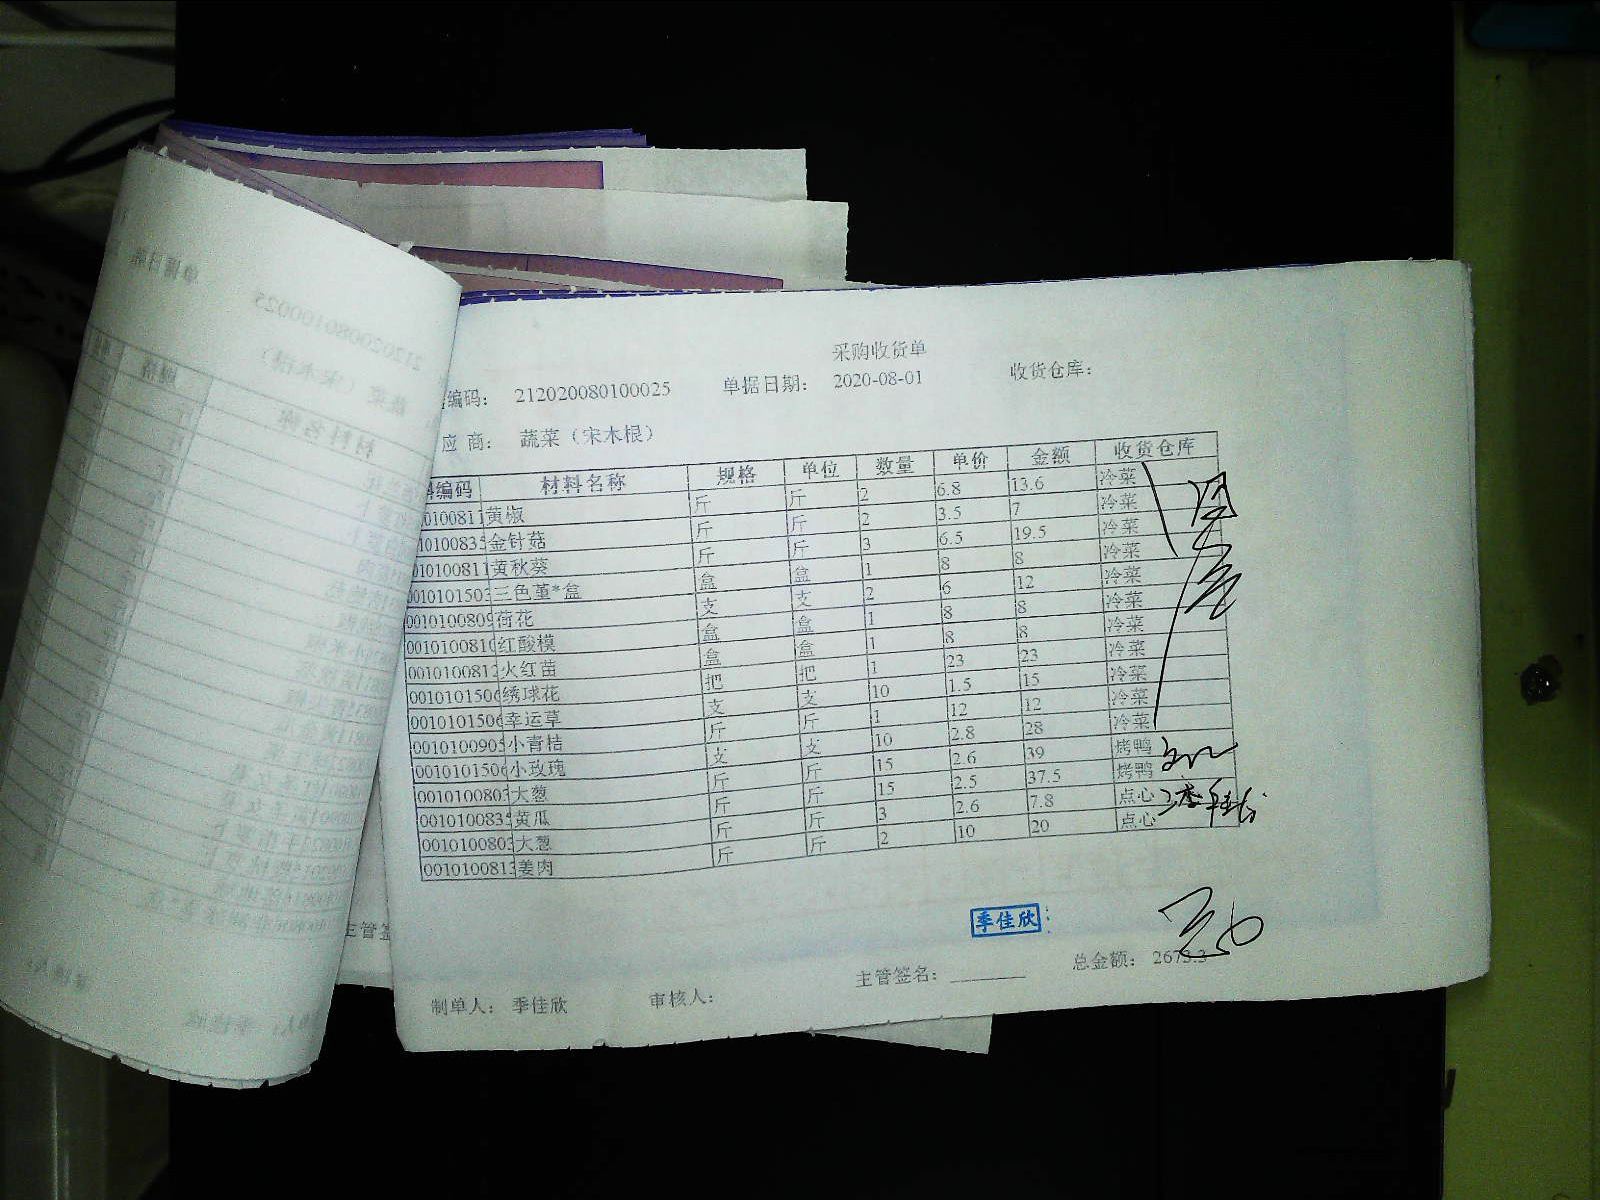 采购收货单
编码: 212020080100025 单据日期: 2020-08-01 收货仓库:
应 商: 蔬菜（宋木根）
编码 材料名称 规格 单位 数量 单价 金额 收货仓库
0100811 黄椒 斤 斤 2 6.8 13.6 冷菜
10100835 金针菇 斤 斤 2 3.5 7 冷菜
010100811 黄秋葵 斤 斤 3 6.5 19.5 冷菜
0010101503 三色堇*盒 盒 盒 1 8 8 冷菜
0010100809 荷花 支 支 2 6 12 冷菜
0010100810 红酸模 盒 盒 1 8 8 冷菜
0010100812 火红苗 盒 盒 1 8 8 冷菜
0010101506 绣球花 把 把 1 23 23 冷菜
0010101506 幸运草 支 支 10 1.5 15 冷菜
0010100905 小青桔 斤 斤 1 12 12 冷菜
0010101506 小玫瑰 支 支 10 2.8 28 冷菜
0010100803 大葱 斤 斤 15 2.6 39 烤鸭
0010100835 黄瓜 斤 斤 15 2.5 37.5 烤鸭
0010100803 大葱 斤 斤 3 2.6 7.8 点心
0010100813 姜肉 斤 斤 2 10 20 点心
季佳欣
主管签
制单人: 季佳欣 审核人: 主管签名: 总金额: 2673.3